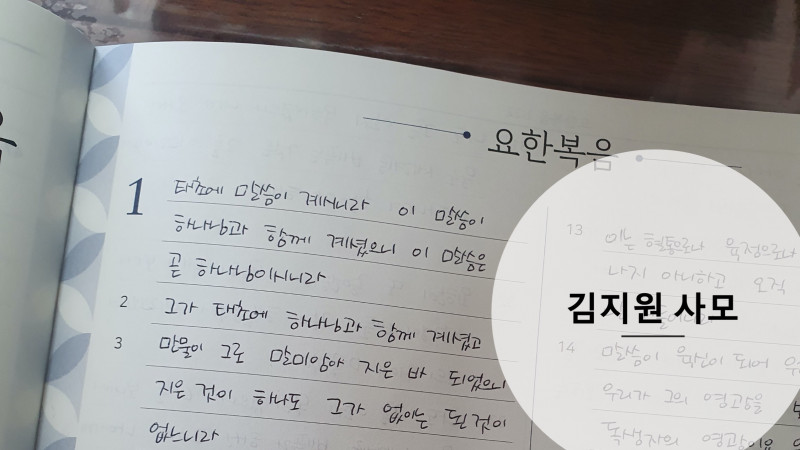 요한복음
1 태초에 말씀이 계시니라 이 말씀이
하나님과 함께 계셨으니 이 말씀은
곧 하나님이시니라
2 그가 태초에 하나님과 함께 계셨고
3 만물이 그로 말미암아 지은 바 되었으니
지은 것이 하나도 그가 없이는 된 것이
없느니라
13 이는 혈통으로나 육정으로나
나지 아니하고 오직
14 말씀이 육신이 되어
우리가 그의 영광을
독생자의 영광이요
김지원 사모